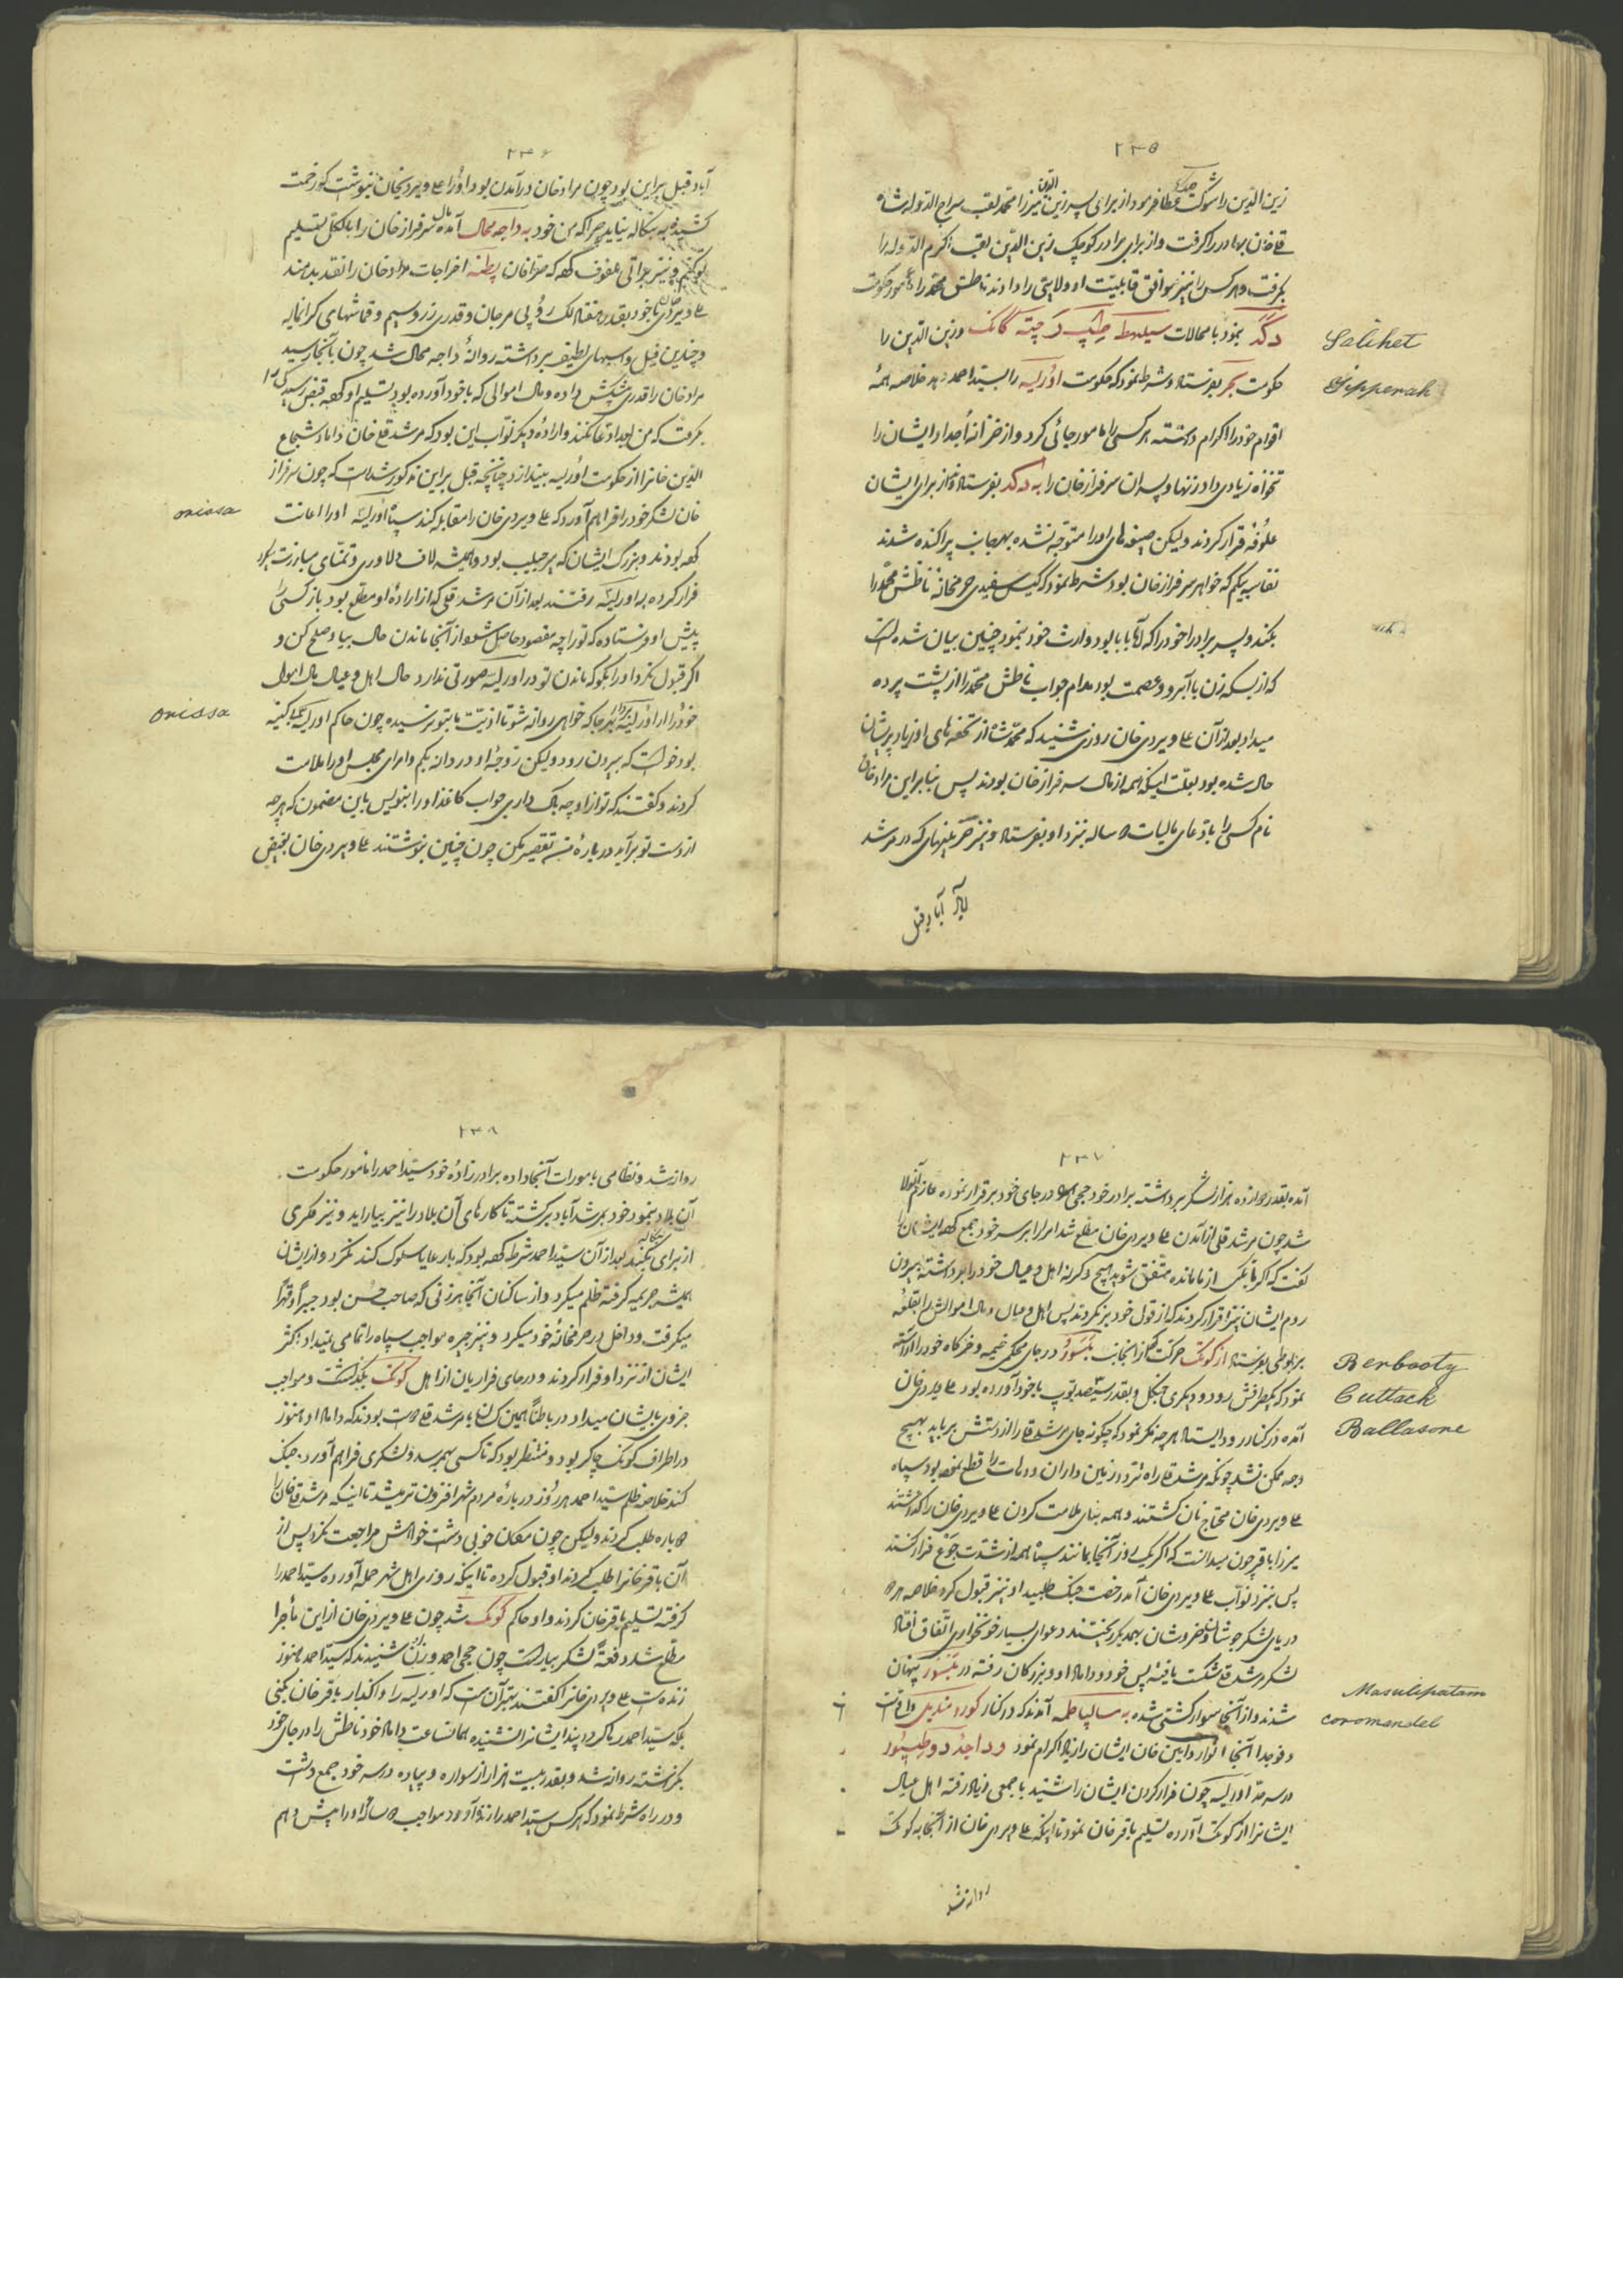 ۲۳۵
زین الدین را شوکت جنگ عطا فرمود از برای پسر زین الدین میرزا محمد لقب سراج الدوله شاه
قلی خان بهادر را گرفت و از برای برادر کوچک زین الدین لقب اکرم الدوله را
بگرفت و هر کس را نیز موافق قابلیت او ولایتی را دادند ناطش محمد را مامور حکومت
دگد بنمود با محالات سیلهط چته گانک و زین الدین را
Selihet
حکومت بحر بفرستاد و شرط نمود که حکومت اوریسه را بسید احمد دهد خلاصه همهٔ
Tipperah
اقوام خود را اکرام داشته هر کسی را مامور جائی کرد و از خزانه اجداد ایشان را
تنخواه زیادی داد زنها و پسران سرفراز خان را به دگد بفرستاد و از برای ایشان
علوفه قرار کردند ولیکن صیغه های او را متوجه نشده بهر جانب پراکنده شدند
نفاسه بیگم که خواهر سرفراز خان بود شرط نمود که گیس سفیدی حرمخانه ناطش محمد را
بکند و پسر برادر خود را که آقا بابا بود وارث خود بنمود چنین بیان شده است
که از بسکه زن با آبرو و عصمت بود مدام جواب ناطش محمد را از پشت پرده
میداد بعد از آن علی ویردی خان روزی شنید که محمد شاه از تحفه های او زیاد پریشان
حال شده بود بعلت اینکه همه از مال سرفراز خان بودند پس بنابراین مراد خان
نام کسی را بادعای مالیات ساله بنزد او بفرستاد و نیز که در مرشد
آباد قبل
۲۳۶
آباد قبل بر این بود چون مراد خان در آمدن بود او را علی ویردیخان بنوشت که زحمت
کشیده به بنگاله نیاید چرا که من خود به داجه محال آمده مال سرفراز خان را بالکل تسلیم
تو کنم و نیز براتی ملفوف کرده که صرافان پطنه اخراجات مراد خان را نقد بدهند
علی ویردی خان با خود بقدر هفتاد لک روپی مرجان و قدری زر و سیم و قماشهای گرانمایه
و چندین فیل و اسبهای لطیف برداشته روانهٔ داجه محال شد چون بآنجا رسید
مراد خان را قدری پیشکش داده و مال اموالی که با خود آورده بود تسلیم او کرده قبض رسیدگی را
بگرفت که من بعد ادعا نکنند و ارادهٔ دیگر نواب این بود که مرشد قلی خان داماد شجاع
الدین خانرا از حکومت اوریسه بیندازد چنانچه قبل بر این مذکور شده است که چون سرفراز
خان لشکر خود را فراهم آورد که علی ویردی خان را مقابله کند سپاه اوریسه او را اعانت
orissa
کرده بودند و بزرگ ایشان که پیر حبیب بود و همیشه لاف دلاوری و تمنای مبارزت بود
فرار کرده به اوریسه رفتند بعد از آن مرشد قلی که از ارادهٔ او مطلع بود باز کسی را
پیش او فرستاده که تو را چه مقصود حاصل شود از آنجا ماندن حال بیا و صلح کن و
اگر قبول نکرد او را بگو که ماندن تو در اوریسه صورتی ندارد حال اهل و عیال مال اموال
خود را از اوریسه بردار بهر جا که خواهی روانه شو تا اذیت ما بتو نرسیده چون حاکم اوریسه
orissa
بود خواست که بیرون رود ولیکن زوجهٔ او دردانه بیگم و امرای مجلس او را ملامت
کردند و گفتند که تو از او چه باک داری جواب کاغذ او را بنویس باین مضمون که هرچه
از دست تو برآید در بارهٔ من تقصیر مکن چون چنین نوشتند علی ویردی خان بغیض
۲۳۷
آمده بقدر دوازده هزار لشکر برداشته برادر خود حجی احمد در جای خود برقرار نموده عازم آنولا
شد چون مرشد قلی از آمدن علی ویردی خان مطلع شد امرا را بر سر خود جمع کرده ایشان را
گفت که اگر بنکی از ما مانده متفق شوید هیچ و گر نه اهل و عیال خود را برداشته بیرون
روم ایشان نیز اقرار کردند که از قول خود بر نگردند پس اهل و عیال و مال اموالش را بقلعه
بربوطی بفرستاد از کوتک حرکت کرد از آنجانب بلسور در جای محکمی خیمه و خرگاه خود را آراسته
Berbooty
نمود که یکطرفش رود و دیگری جنگل و بقدر سیصد توپ با خود آورده بود علی ویردی خان
Cuttack
آمده در کنار رود ایستاد هر چه فکر نمود که چگونه جای مرشد قلی را از دستش برباید بهیچ
Ballasore
وجه ممکن نشد چونکه مرشد قلی راه تردد زمین داران و دهات را قطع نموده بود سپاه
علی ویردی خان محتاج نان گشتند و همه بنای ملامت کردن علی ویردی خان را گذاشتند
میرزا باقر چون میدانست که اگر یک روز آنجا بمانند سپاه همه از شدت جوع فرار کنند
پس بنزد نواب علی ویردی خان آمده رخصت جنگ طلبید او نیز قبول کرد خلاصه هر دو
دریای لشکر جوشان و خروشان بهمدیگر ریختند دعوای بسیار خونخواری اتفاق افتاد
لشکر مرشد قلی شکست یافته پس خود و داماد او و بزرگان رفته در بلسور پنهان
شدند و از آنجا سوار کشتی شده به مسالپاطم آمدند که در کنار کورومندیل واقع است
Masulipatam
و فوجدار آنجا انوار الدین خان ایشان را زیاد اکرام نمود و داجد دوطیپور
coromandel
در سرحد اوریسه چون فرار کردن ایشان را شنید با جمعی زیاد رفته اهل و عیال
ایشانرا از کوتک آورده تسلیم باقر خان نمود تا اینکه علی ویردی خان از آنجا به کوتک
روانه شد
۲۳۸
روانه شد و نظامی بامورات آنجا داده برادر زادهٔ خود سید احمد را مامور حکومت
آن بلاد بنمود خود بمرشد آباد برگشته تا کارهای آن بلاد را نیز بیاراید و نیز فکری
از برای بنگاله بکند بعد از آن سید احمد شرط کرده بود که با رعایا سلوک کند نکرد و از ایشان
همیشه جریمه گرفته ظلم میکرد و از ساکنان آنجا هر زنی که صاحب حسن بود جبراً و قهراً
میگرفت و داخل در حرمخانهٔ خود میکرد و نیز جیره مواجب سپاه را تمامی نمیداد اکثر
ایشان از نزد او فرار کردند و در جای فراریان از اهل کوتک بگذاشت و مواجب
جزوی بایشان میداد در باطناً همین کسان با مرشد قلی دوست بودند که داماد او هنوز
در اطراف کوتک چاکر بود و منتظر بود که تا کسی بهم رسد و لشکری فراهم آورد جنگ
کند خلاصه ظلم سید احمد هر روز در بارهٔ مردم شهر افزون تر میشد تا اینکه مرشد قلی خان را
دوباره طلب کردند ولیکن چون مکان خوبی داشت خواهش مراجعت نکرد پس از
آن باقر خانرا طلب کردند او قبول کرده تا اینکه روزی اهل شهر حمله آورده سید احمد را
گرفته تسلیم باقر خان کردند و او حاکم کوتک شد چون علی ویردی خان از این ماجرا
مطلع شد دفعةً لشکر بیاراست چون حجی احمد و زن شنیدند که سید احمد هنوز
زنده است علی ویردی خانرا گفتند بهتر آن است که اوریسه را واگذار باقر خان بکنی
بلکه سید احمد رها گردد پند ایشانرا نشنیده همان ساعت داماد خود ناطش را در جای خود
بگذاشته روانه شد و بقدر بیست هزار از سواره و پیاده در سر خود جمع داشت
و در راه شرط نمود که هر کس سید احمد را زنده آورد مواجب دو ساله او را پیش دهم